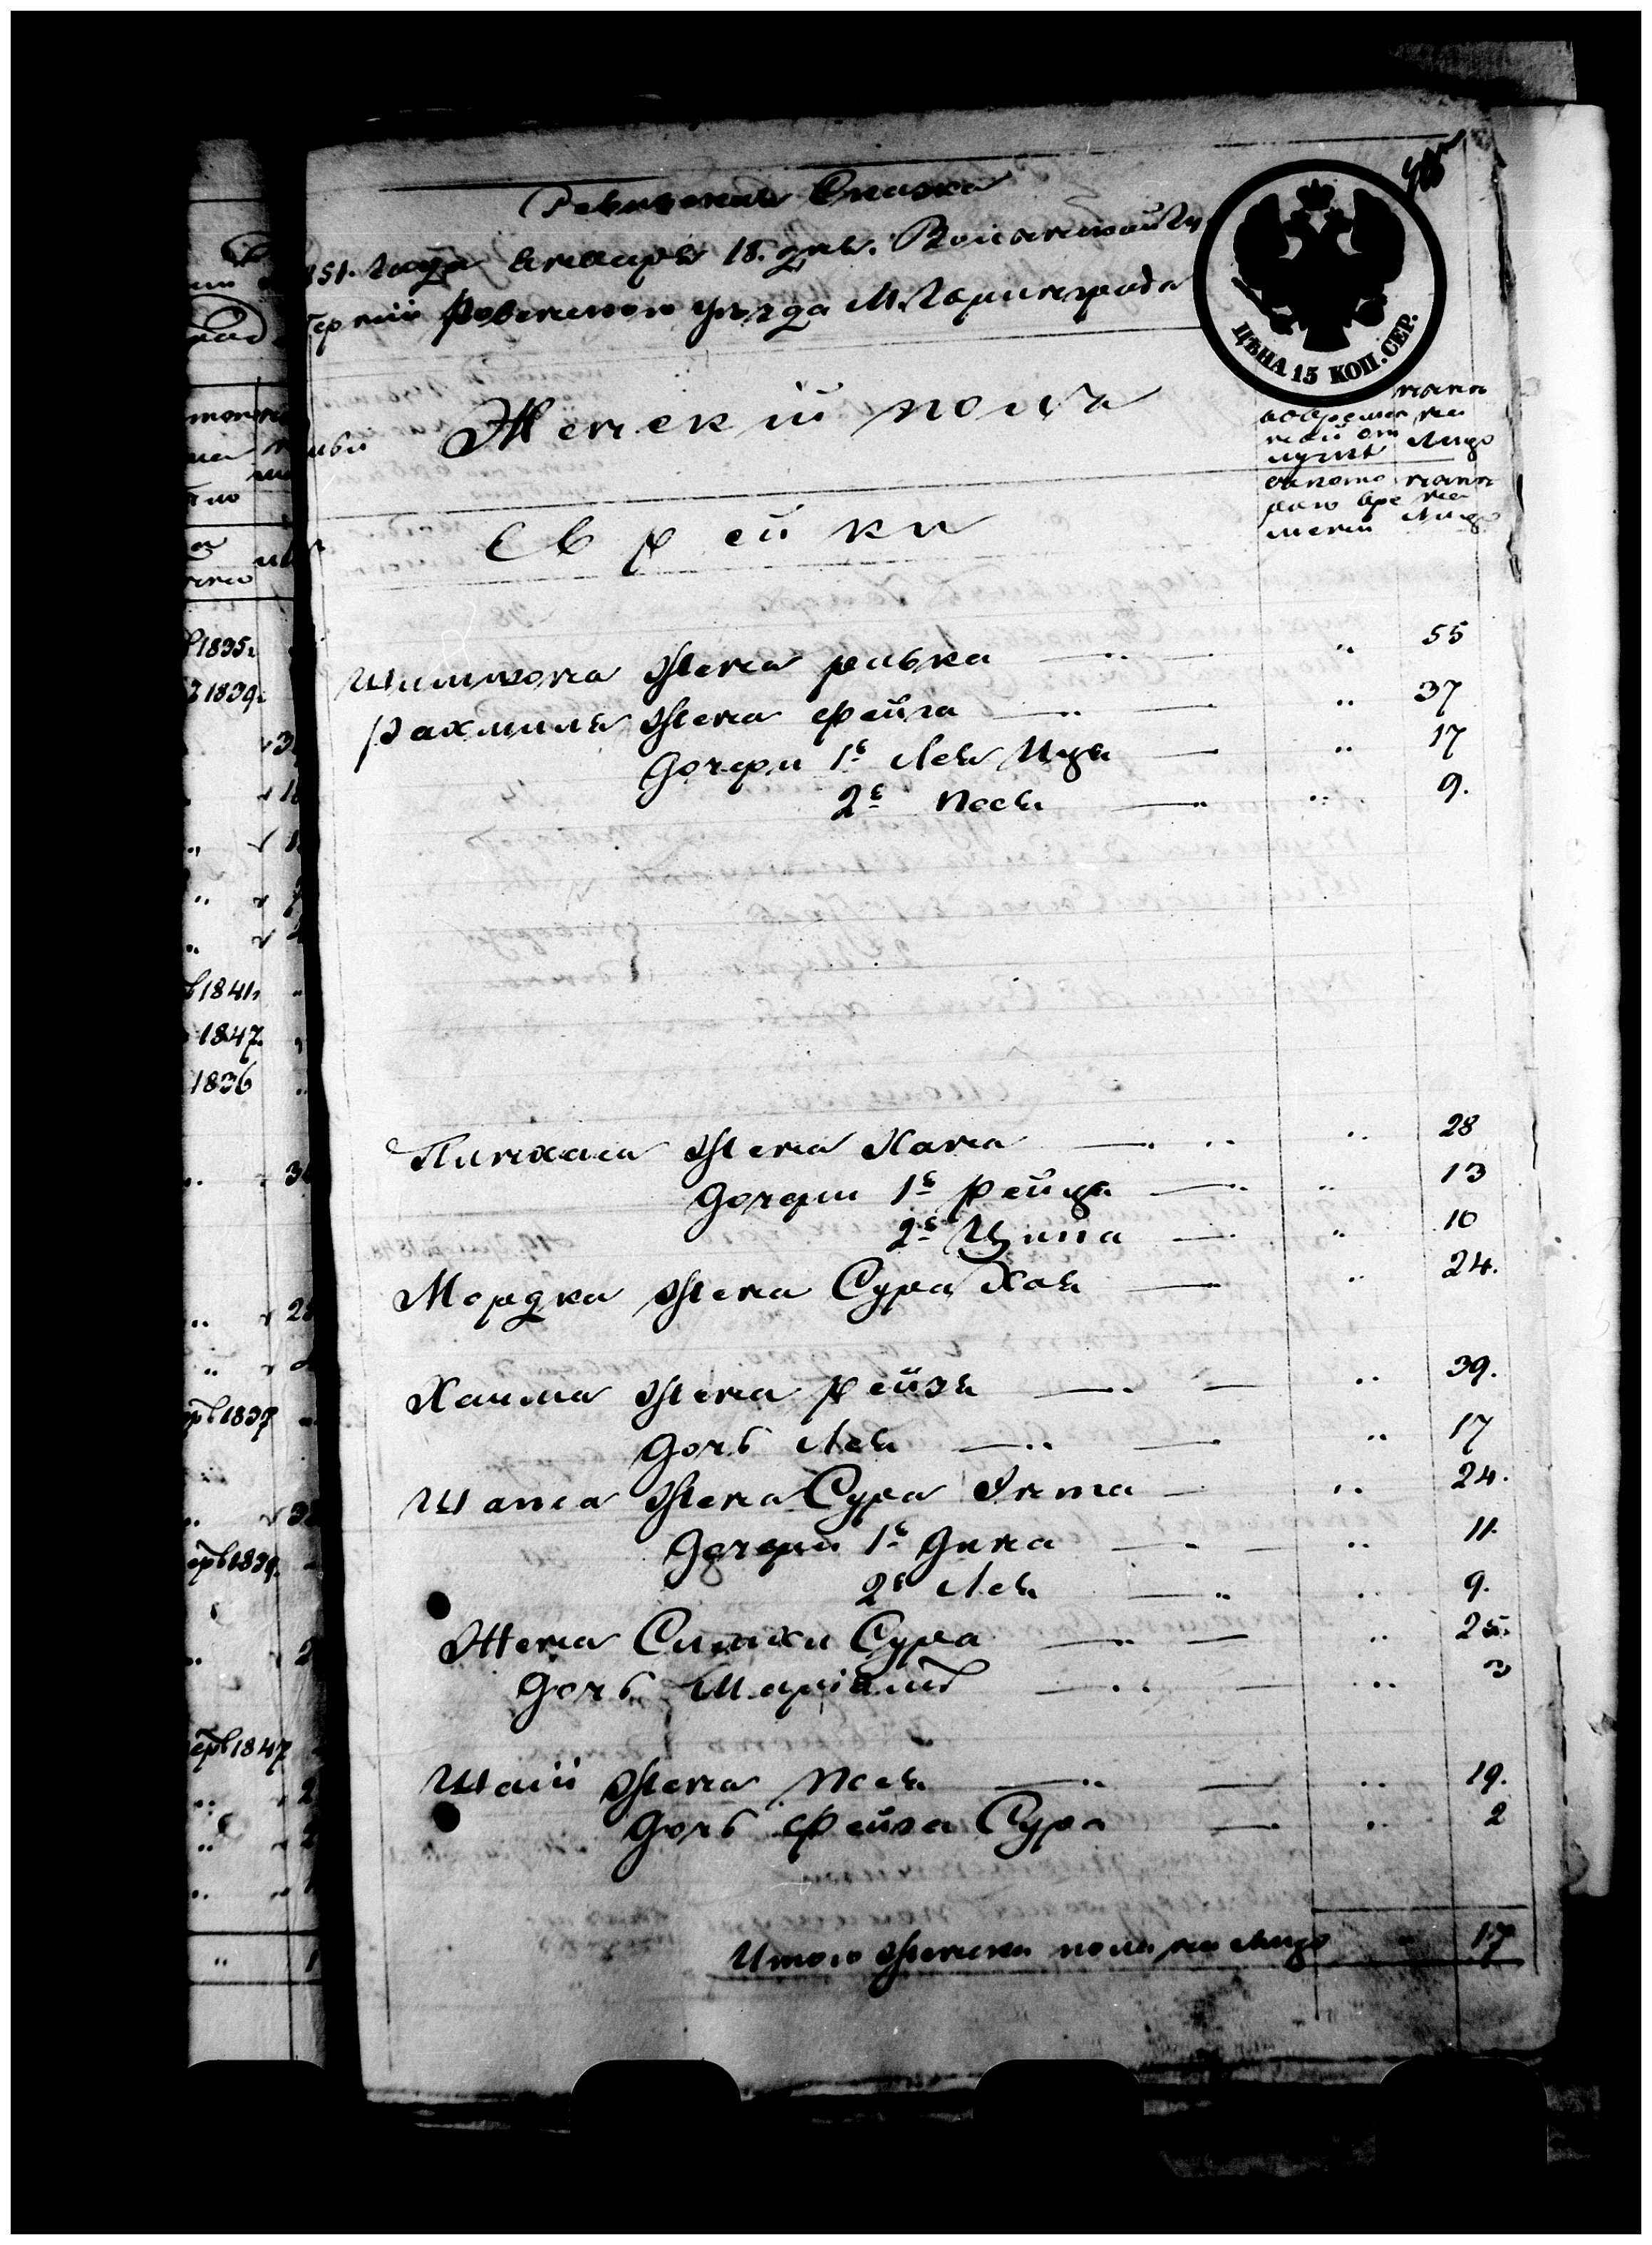 Ревизская Сказка
851. года января 18. дня. Волынской Гу
берніи Ровенскаго уѣзда М. Горинграда
ЦѢНА 15 КОП. СЕР.
Женскій полъ
во времен
ной от
лучкѣ
налицо
Еврейки
съ котораго времени
налицо
Шимшона Жена Ривка " 55
Рахмиля Жена Фейга " 37
Дочери 1я Лея Иця " 17
2я Песя " 9.
Пинхаса Жена Хана " 28
Дочери 1я Рейця " 13
2я Ципа " 10
Мордка Жена Сура Хая " 24.
Хаима Жена Рейзя " 39.
Дочь Лея " 17
Шапса Жена Сура Ента " 24.
Дочери 1я Дина " 11.
2я Лея " 9.
Жена Симхи Сура " 25.
Дочь Маріямъ " 3
Шаіи Жена Песя " 19.
Дочь Фейга Сура " 2
Итого Женска пола на лицо " 17
1835.
1839.
1841.
1847.
1836
1837
1839.
1847